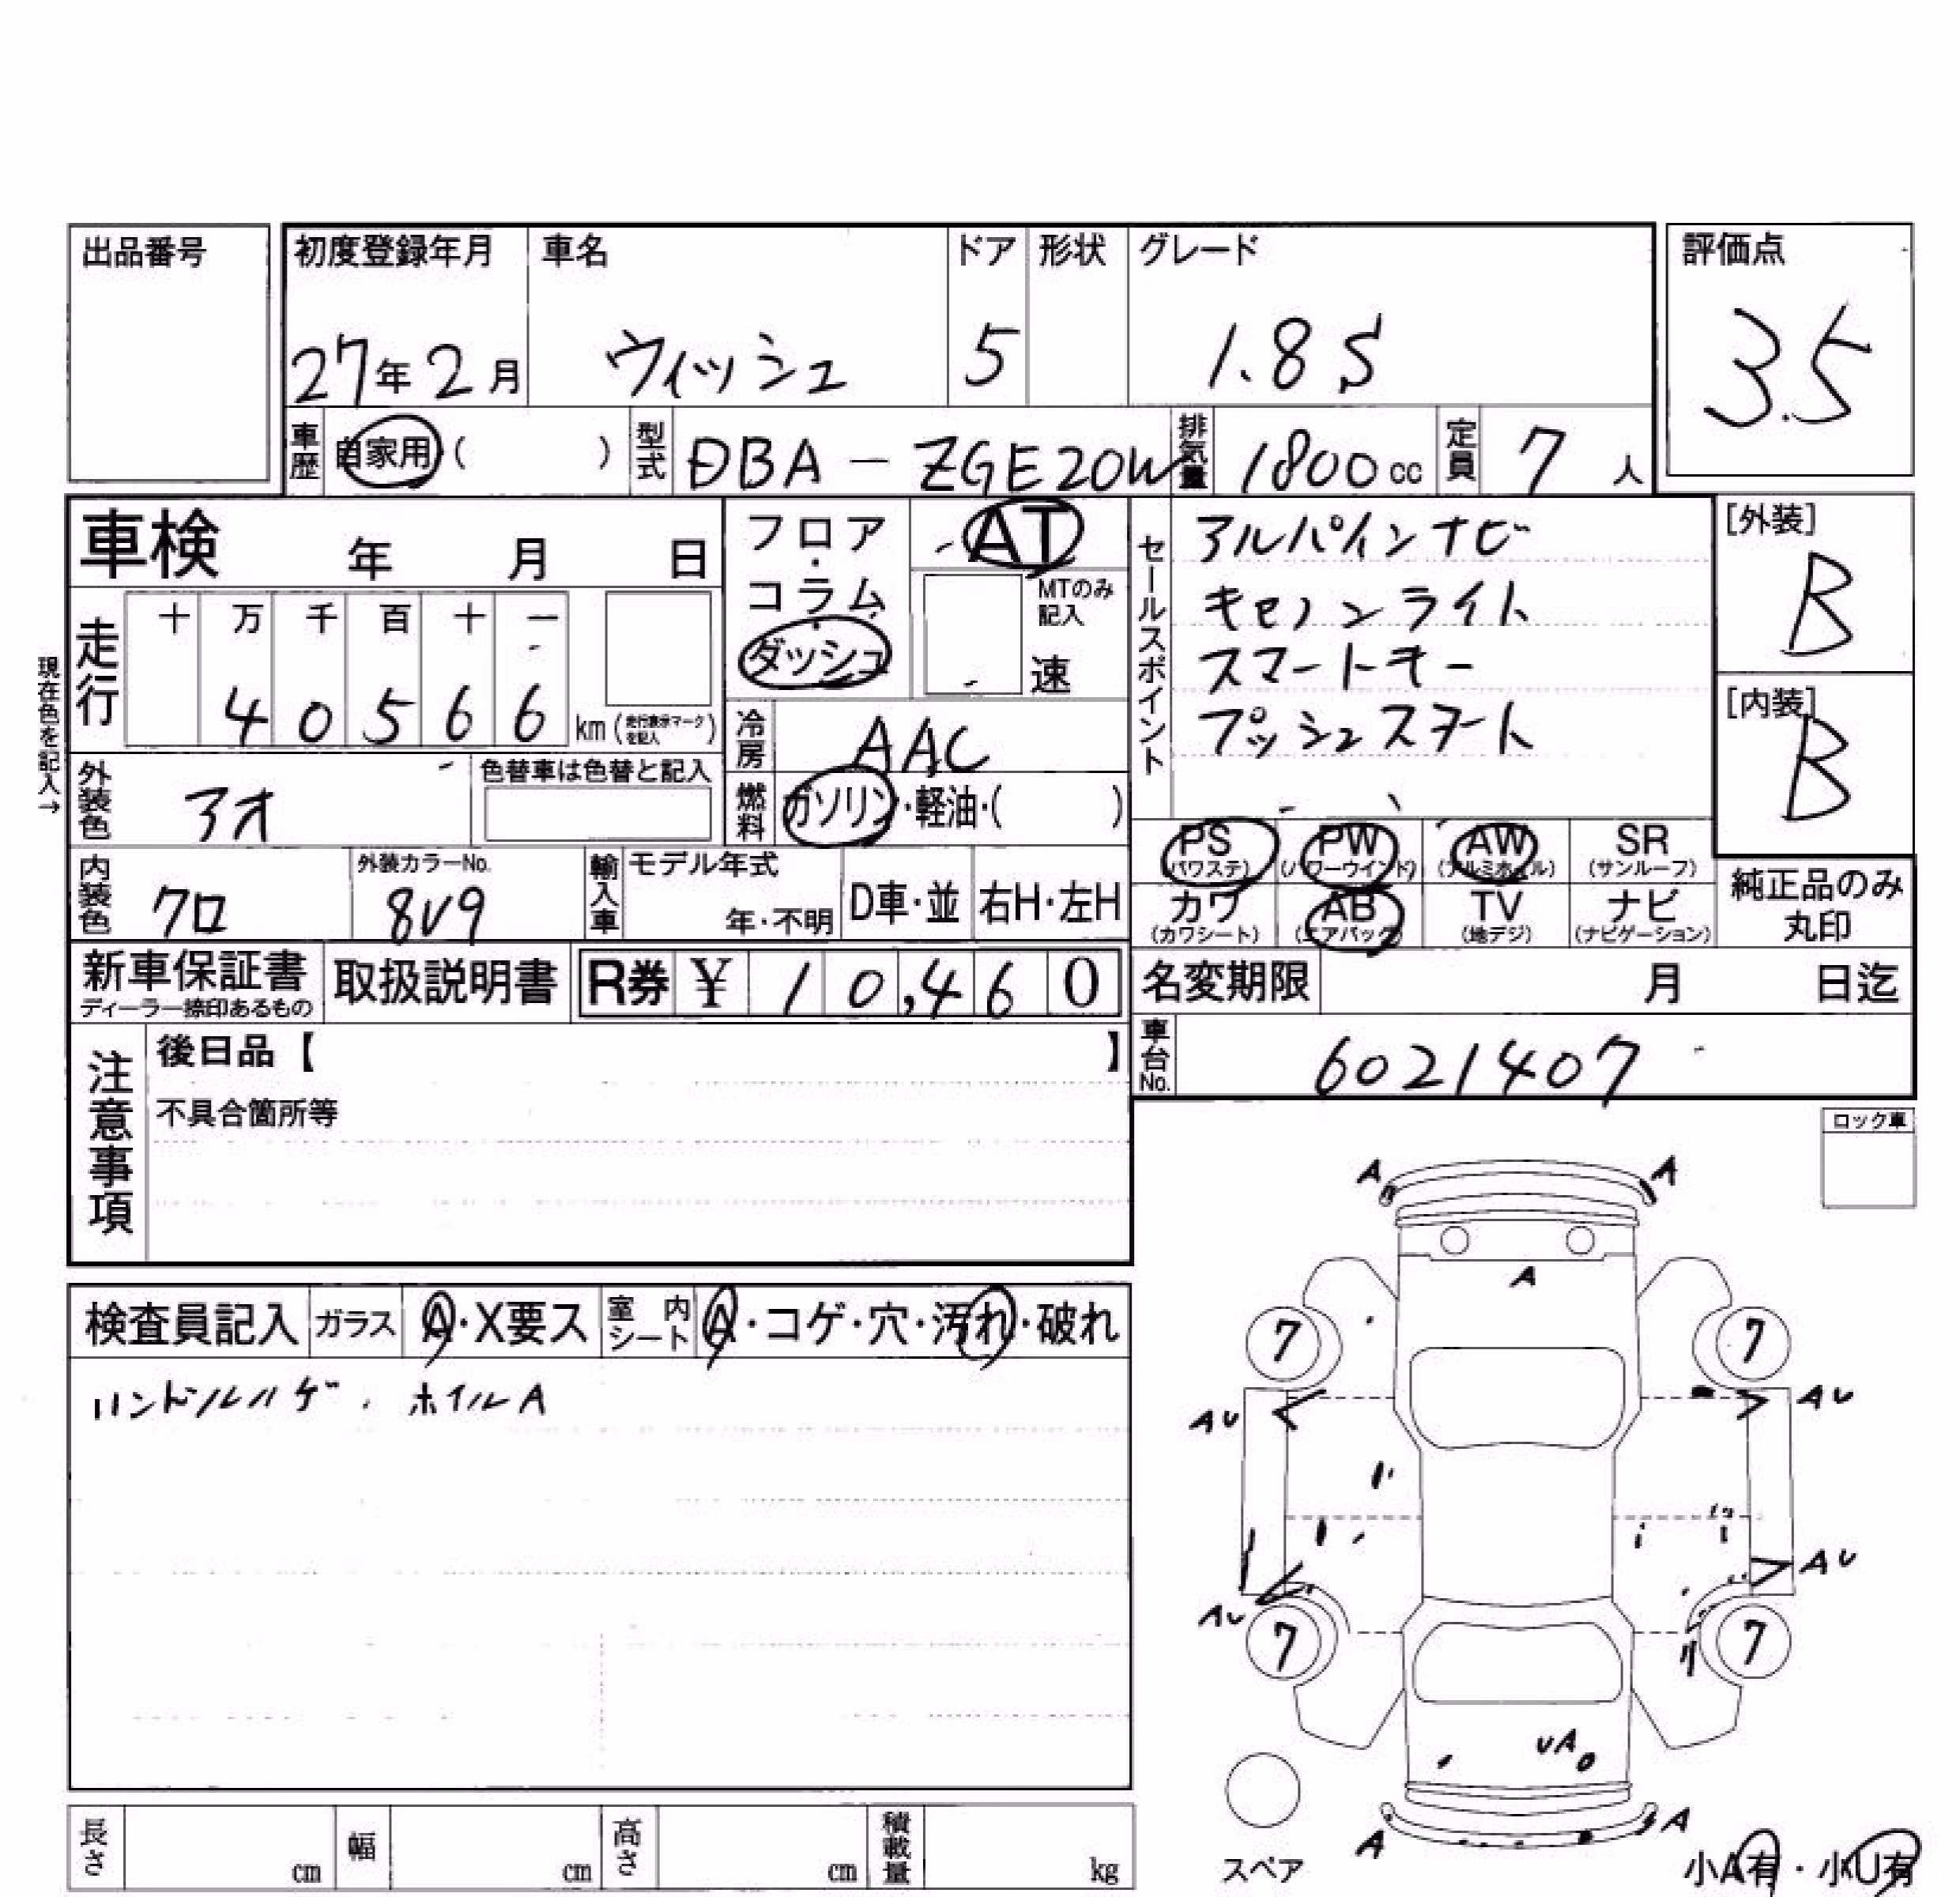 出品番号
初度登録年月 車名 ドア 形状 グレード 評価点
27年2月 ウィッシュ 5 1.8S 3.5
車歴 自家用 ( ) 型式 DBA-ZGE20W 排気量 1800cc 定員 7人
車検 年 月 日
フロア・コラム ダッシュ
AT
MTのみ記入
速
セールスポイント
アルパインナビ
キセノンライト
スマートキー
プッシュスタート
[外装]
B
[内装]
B
現在色を記入→
走行 十 万 千 百 十 一
4 0 5 6 6 km (走行表示マークを記入)
冷房 AAC
外装色 アオ 色替車は色替と記入
燃料 ガソリン・軽油・( )
PS (パワステ) PW (パワーウインド) AW (アルミホイル) SR (サンルーフ)
カワ (カワシート) AB (エアバッグ) TV (地デジ) ナビ (ナビゲーション)
純正品のみ丸印
内装色 クロ 外装カラーNo. 8V9 輸入車 モデル年式 年・不明 D車・並 右H・左H
新車保証書 ディーラー捺印あるもの 取扱説明書 R券 ¥ 10,460 名変期限 月 日迄
車台No. 6021407
注意事項
後日品【 】
不具合箇所等
ロック車
検査員記入 ガラス A・X要ス 室内シート A・コゲ・穴・汚れ・破れ
ハンドルハゲ. ホイルA
A A
A
7 7
AU AU
AU AU
7 7
UA
A A
スペア
小A有・小U有
長さ cm 幅 cm 高さ cm 積載量 kg